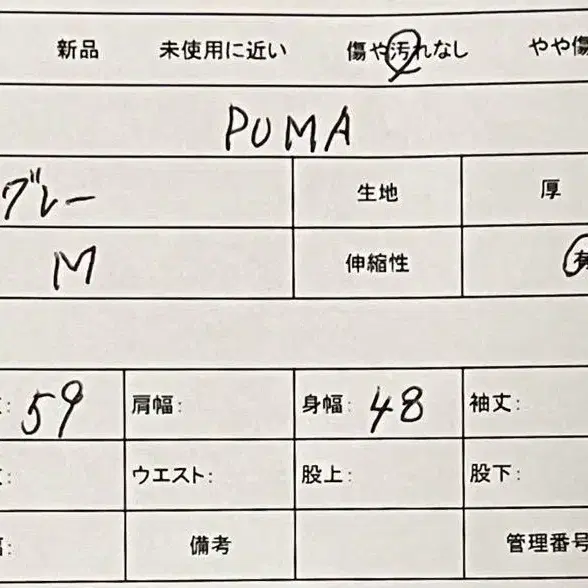 新品 未使用に近い 傷や汚れなし やや傷
PUMA
グレー 生地 厚
M 伸縮性 有
: 59 肩幅: 身幅: 48 袖丈:
: ウエスト: 股上: 股下:
: 備考 管理番号